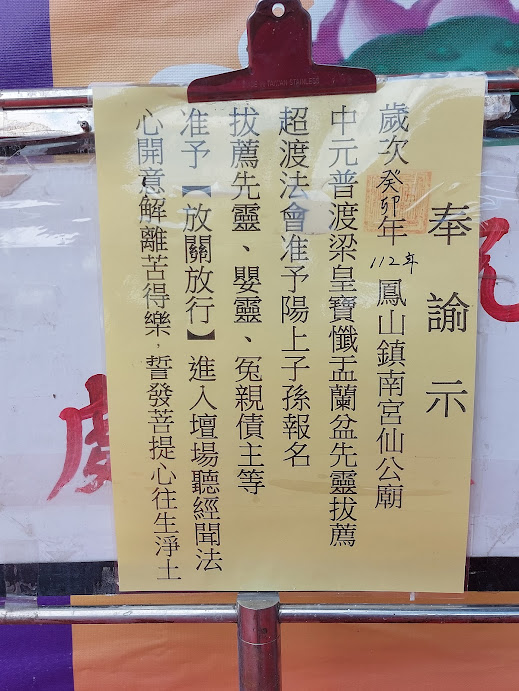 奉諭示
歲次癸卯年 鳳山鎮南宮仙公廟
112年
中元普渡梁皇寶懺盂蘭盆先靈拔薦
超渡法會准予陽上子孫報名
拔薦先靈、嬰靈、冤親債主等
准予【放關放行】進入壇場聽經聞法
心開意解離苦得樂，誓發菩提心往生淨土